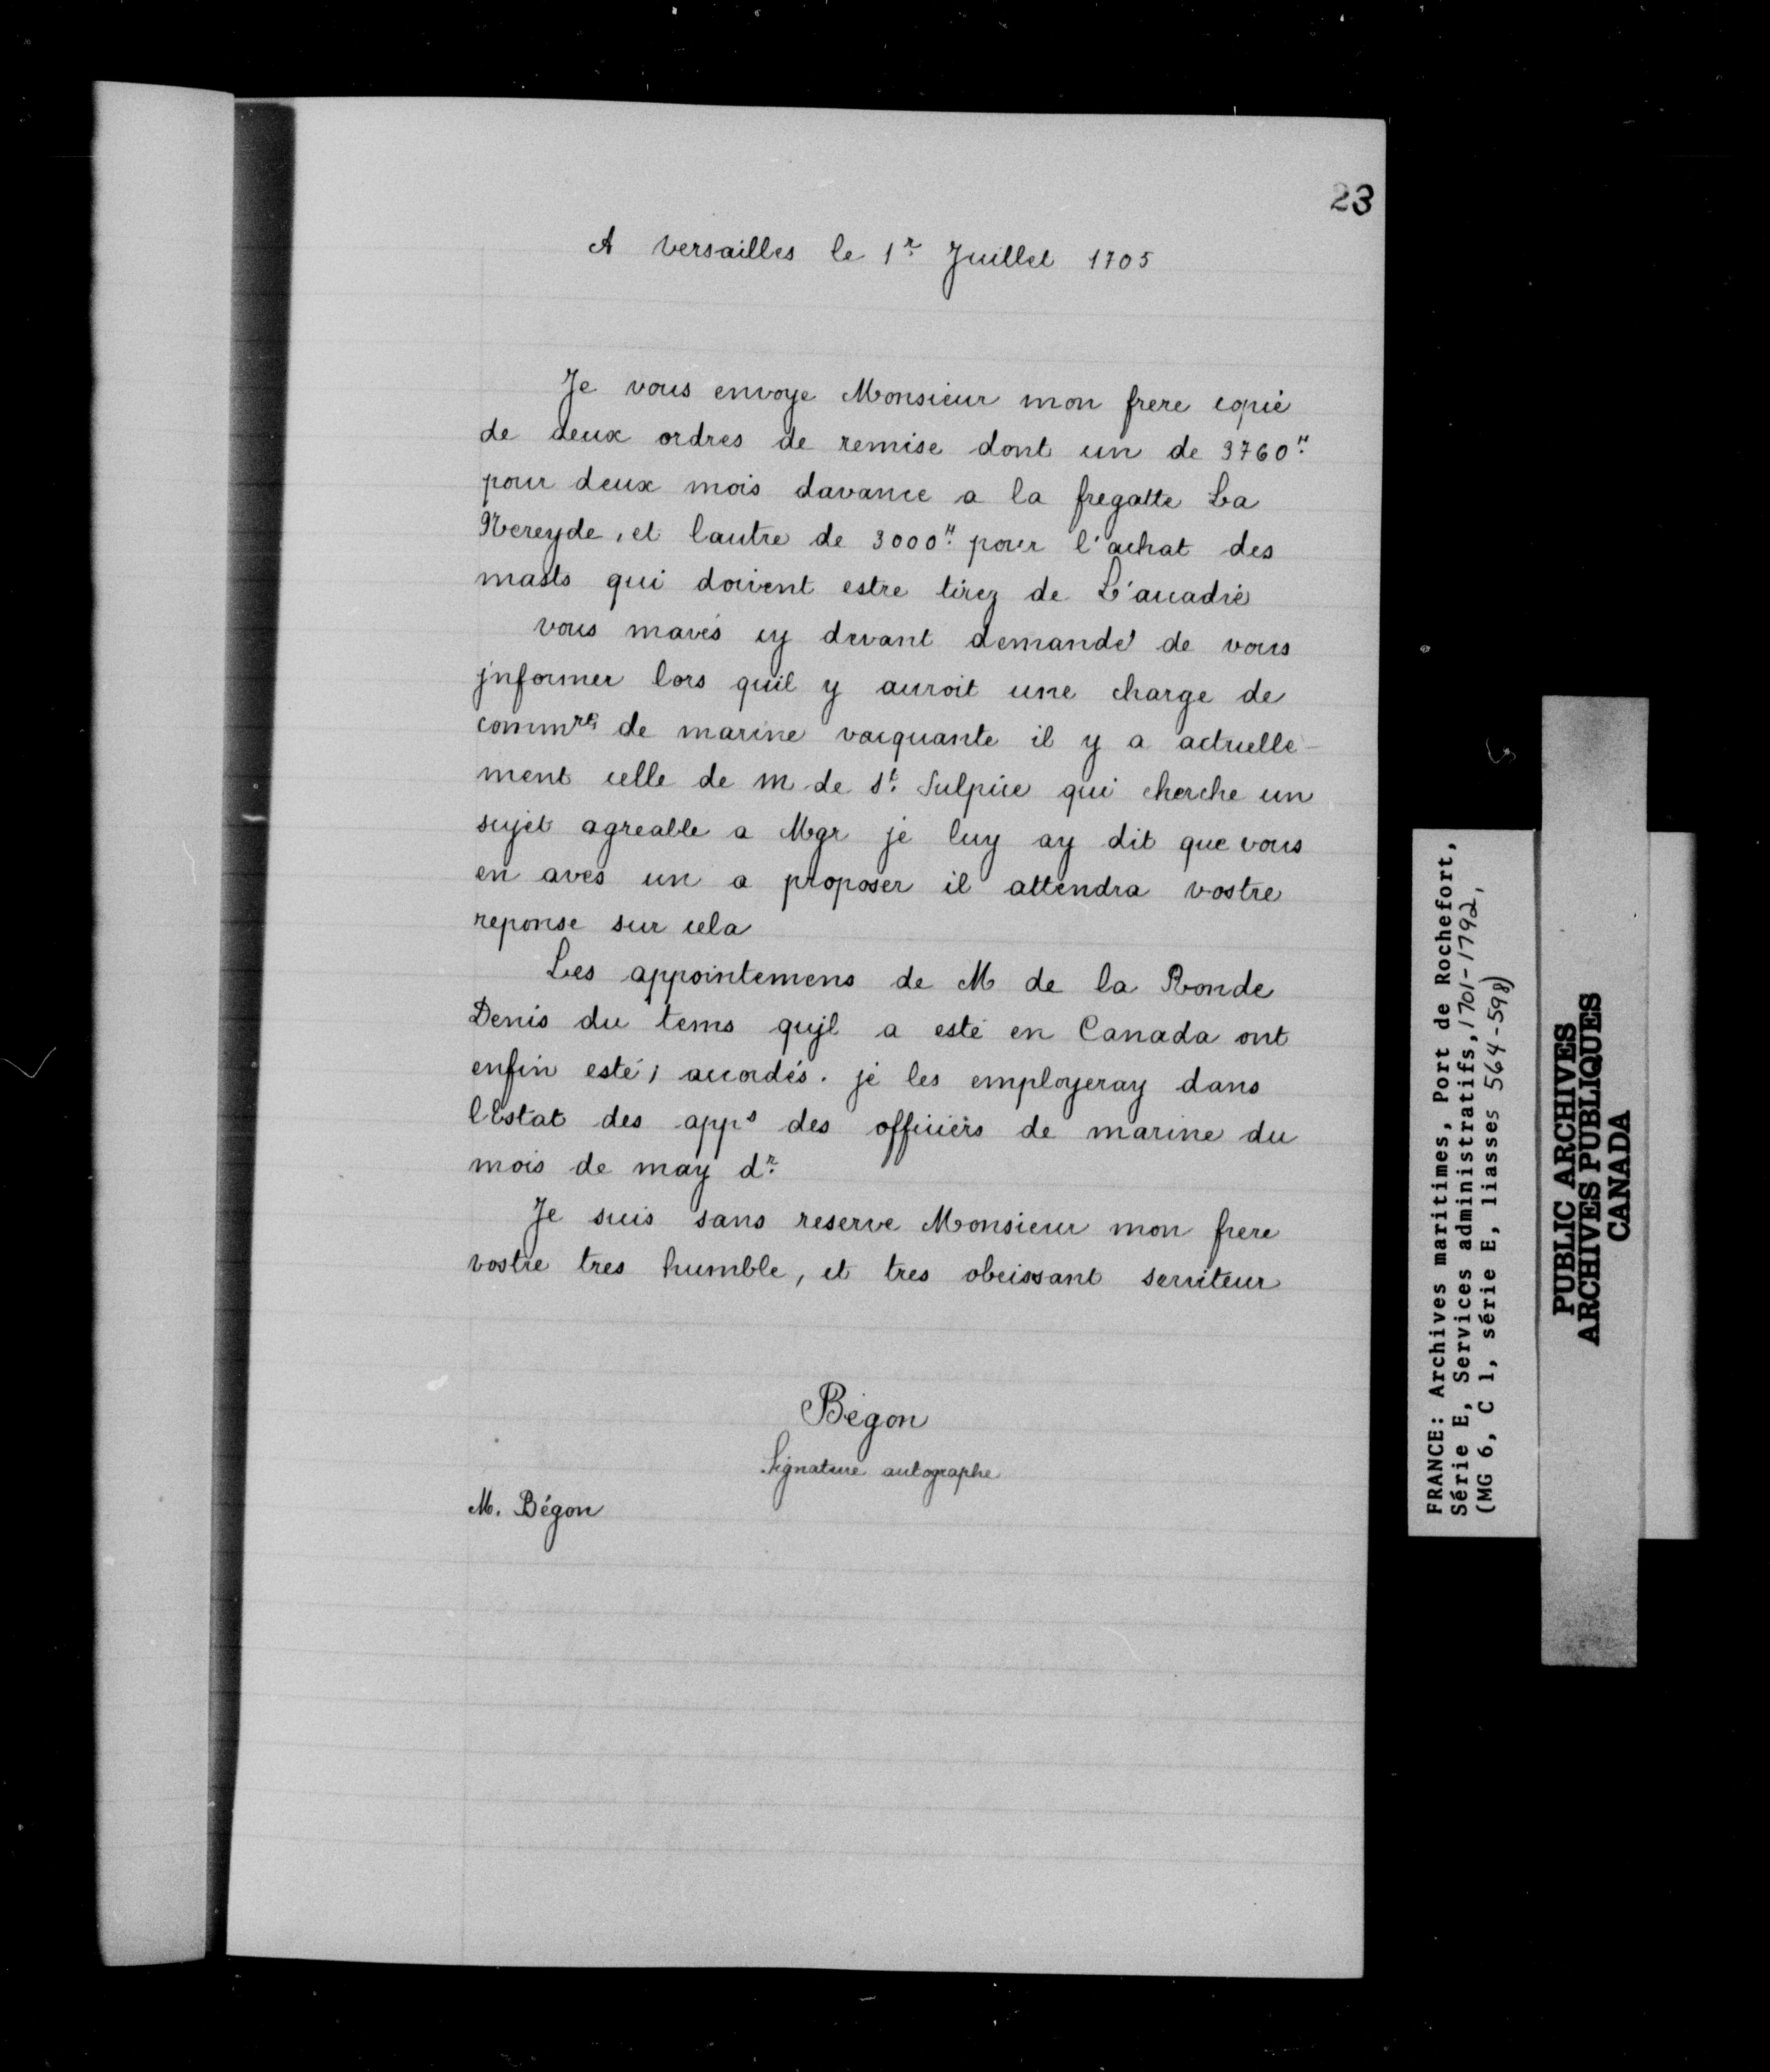 23
A Versailles le 1r Juillet 1705
Je vous envoye Monsieur mon frere copie
de deux ordres de remise dont un de 3760"
pour deux mois davance a la fregatte La
Nereyde, et lautre de 3000" pour l'achat des
masts qui doivent estre tirez de L'accadie
vous mavés cy devant demandé de vous
jnformer lors quil y auroit une charge de
commre de marine vacquante il y a actuelle-
ment celle de m de St. Sulpice qui cherche un
sujet agreable a Mgr je luy ay dit que vous
en avés un a proposer il attendra vostre
reponse sur cela
Les appointemens de M de la Ronde
Denis du tems qujl a esté en Canada ont
enfin esté, accordés. je les employeray dans
lEstat des apps des officiers de marine du
mois de may dr.
Je suis sans reserve Monsieur mon frere
vostre tres humble, et tres obeissant serviteur
Bégon
Signature autographe
M. Bégon
FRANCE: Archives maritimes, Port de Rochefort,
Série E, Services administratifs, 1701-1792,
(MG 6, C 1, série E, liasses 564-598)
PUBLIC ARCHIVES
ARCHIVES PUBLIQUES
CANADA